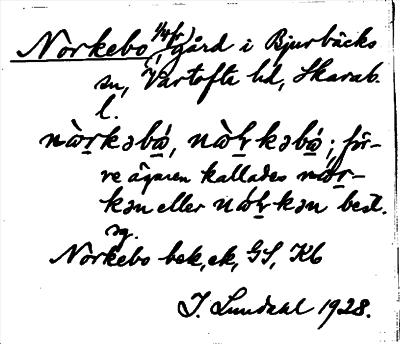 Norkebo 1/4 fr, gård i Bjurbäcks
sn, Vartofta hd, Skarab.
l.
nò̀rkəbó, nò̀rkəbó; för-
re ägaren kallades nór-
kən eller nórkən best.
sg.
Norkebo bek, ek, GS, Kb
I. Lundahl 1928.